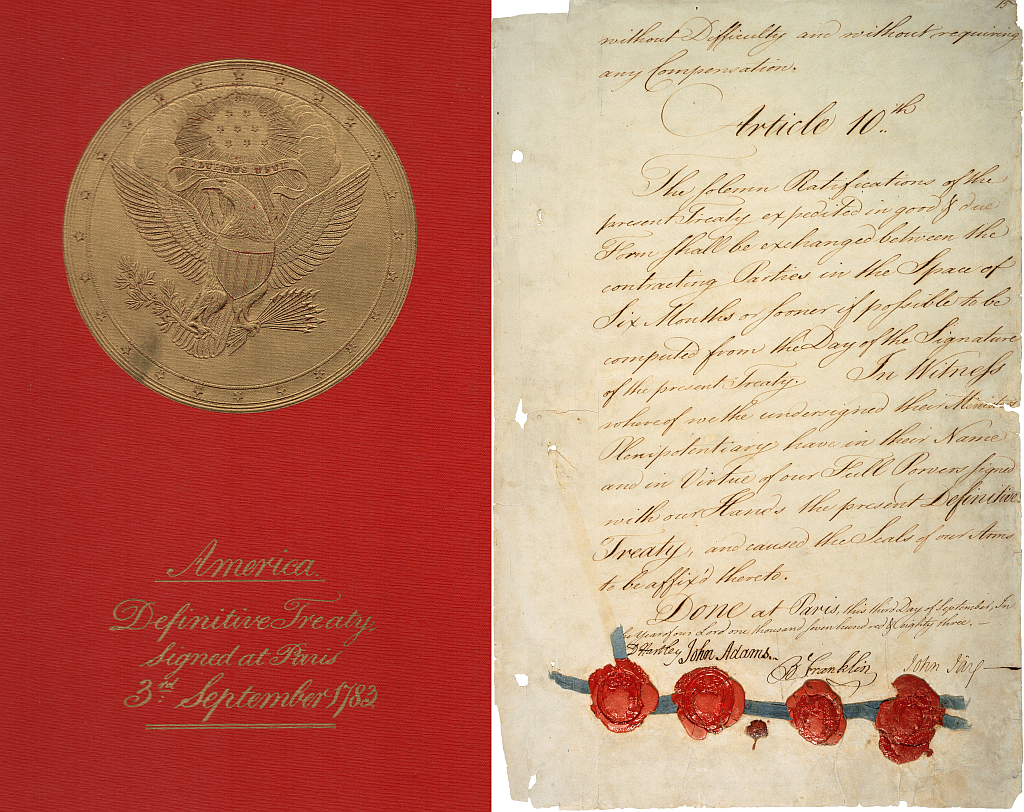 E PLURIBUS UNUM
America
Definitive Treaty,
Signed at Paris
3rd September 1783
15
without Difficulty and without requiring
any Compensation.
Article 10th
The solemn Ratifications of the
present Treaty expedited in good & due
Form shall be exchanged between the
contracting Parties in the Space of
Six Months or sooner if possible to be
computed from the Day of the Signature
of the present Treaty. In Witness
whereof we the undersigned their Ministers
Plenipotentiary have in their Name
and in Virtue of our Full Powers signed
with our Hands the present Definitive
Treaty, and caused the Seals of our Arms
to be affix'd thereto.
Done at Paris, this third Day of September, In
Year of our Lord one thousand seven hundred & eighty three.–
D Hartley John Adams.
B Franklin John Jay